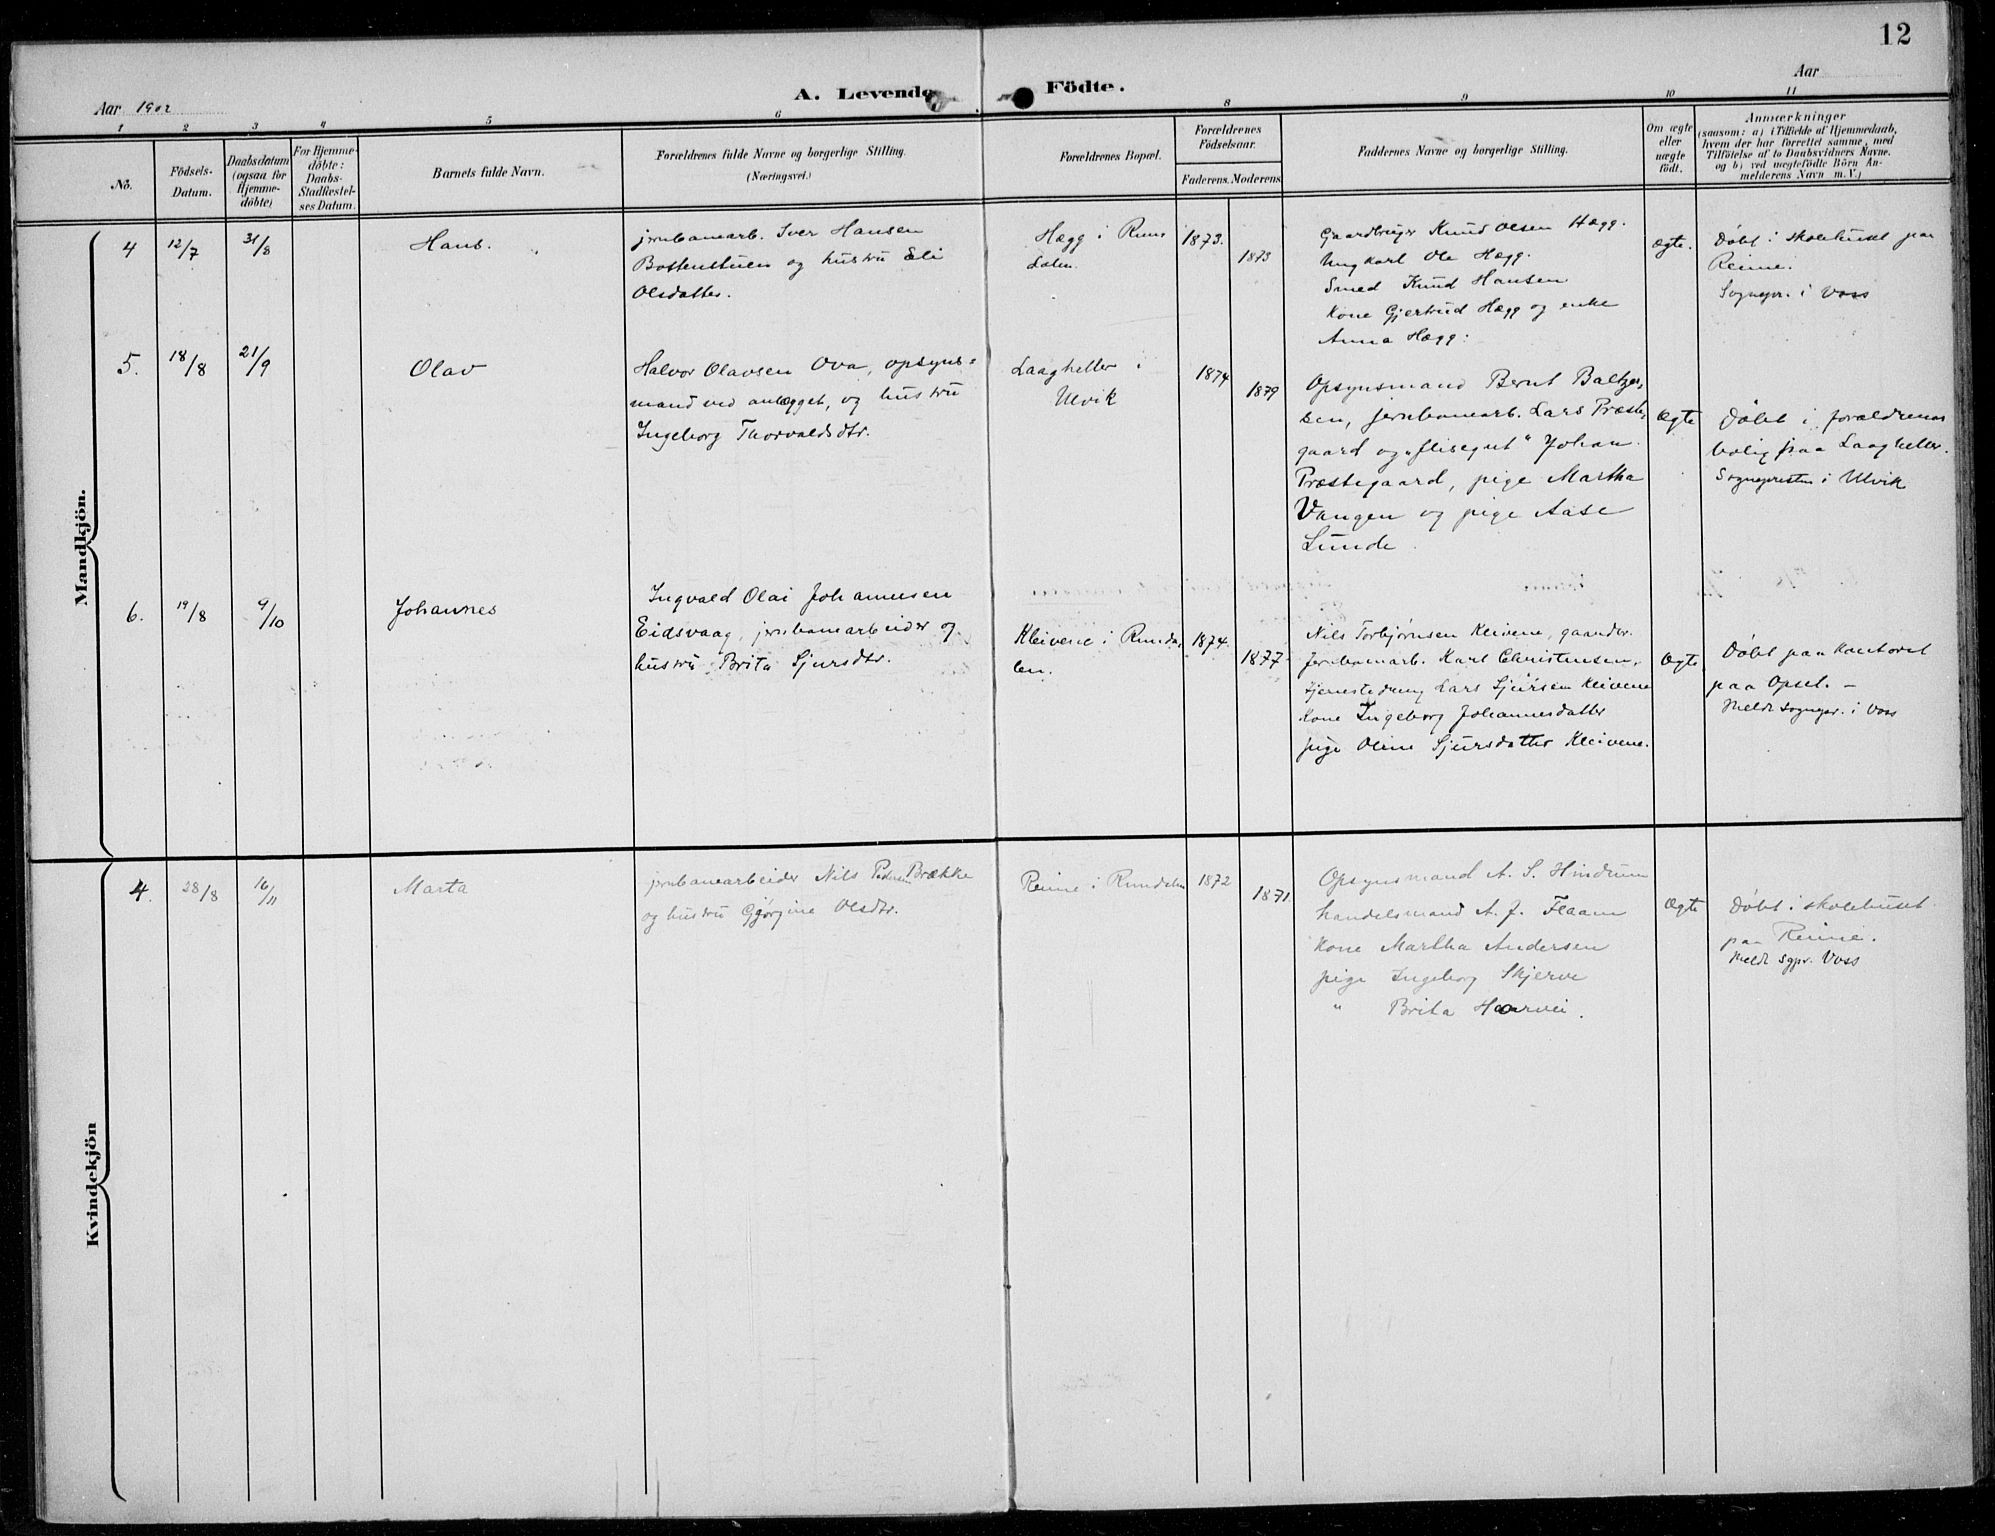 12
Aar 1902
A. Levende Födte.
Aar
1 2 3 4 5 6 8 9 10 11
No.
Födsels-Datum.
Daabsdatum (ogsaa for Hjemme-döbte)
For Hjemme-döbte: Daabs-Stadfæstel-ses Datum.
Barnets fulde Navn.
Forældrenes fulde Navne og borgerlige Stilling.
(Næringsvei.)
Forældrenes Bopæl.
Forældrenes Födselsaar.
Faderens. Moderens.
Faddernes Navne og borgerlige Stilling.
Om ægte eller uægte födt.
Anmærkninger
(saasom: a) i Tilfælde af Hjemmedaab,
hvem der har forrettet samme, med
Tilföielse af to Daabsvidners Navne.
og b) ved uægtefödte Börn An-
melderens Navn m. V.)
Mandkjön.
4 12/7 31/8 Hans.
jernbanearb. Iver Hansen
Bottenstuen og hustru Eli
Olsdatter.
Hægg i Run-
dalen.
1873.
1873
Gaardbruger Knud Olsen Hægg.
Ungkarl Ole Hægg.
Smed Knud Hansen
Kone Gjertrud Hægg og enke
Anna Hægg.
ægte.
Døbt i skolehuset paa
Reime.
Sognepr. i Voss
5. 18/8 21/9 Olav
Halvor Olavsen Ova, opsyns=
mand ved anlægget, og hustru
Ingeborg Thorvaldsdtr.
Laagheller i
Ulvik
1874
1879
Opsynsmand Bernt Baltzer-
sen, jernbanearb. Lars Præste-
gaard og "flisegut" Johan
Præstegaard, pige Martha
Vangen og pige Aase
Lunde.
Ægte
Døbt i forældrenes
bolig paa Laagheller.
Sognepresten i Ulvik
6. 19/8 9/10 Johannes
Ingvald Olai Johannesen
Eidsvaag, jernbanearbeider og
hustru Brita Sjursdtr.
Kleivene i Runda-
len.
1874.
1877
Nils Torbjørnsen Kleivene, gaardbr.
Jernbanearb. Karl Christensen,
tjenestedreng Lars Sjursen Kleivene
Kone Ingeborg Johannesdatter
pige Oline Sjursdatter Kleivene.
Ægte
Døbt paa kontoret
paa Opset. –
Meldt sognepr. i Voss
Kvindekjön
4. 28/8 16/11 Marta
jernbanearbeider Nils Pedersen Brække
og hustru Gjørgine Olsdtr.
Reime i Rundalen
1872
1871.
Opsynsmand A. S. Hindrum
handelsmand A. J. Flaam
Kone Martha Andersen
pige Ingeborg Skjerve
" Brita Haarvei.
Ægte
Døbt i skolehuset
paa Reime.
Meldt sgpr. Voss